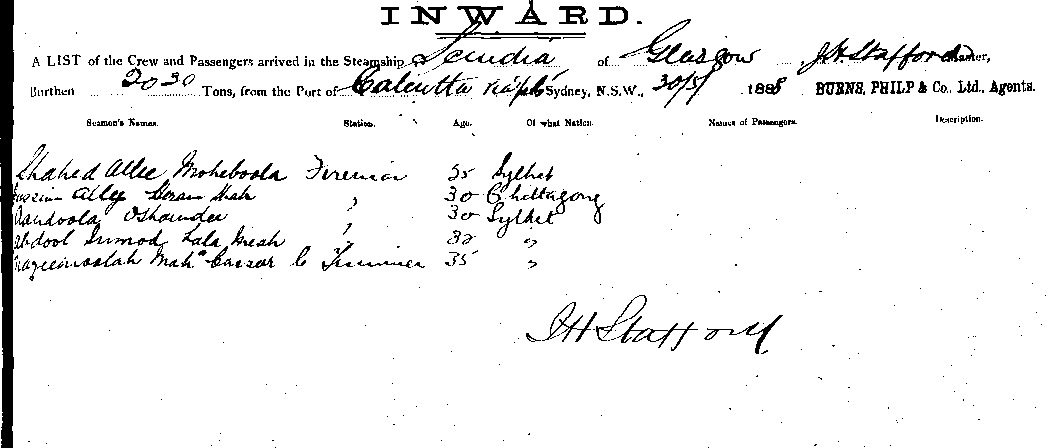 INWARD.
A LIST of the Crew and Passengers arrived in the Steamship Scindia of Glasgow J H Stafford Master,
Burthen 2030 Tons, from the Port of Calcutta Sydney, N.S.W., 30/5/ 1888 BURNS, PHILP & Co., Ltd., Agents.
Seamen's Names. Station. Age. Of what Nation. Names of Passengers. Description.
Shahed Allee Moheboola Fireman 25 Sylhet
Alley Meah " 30 Chittagong
Oshainder " 30 Sylhet
Abdool Lala Meah " 32 "
C Trimmer 35 "
J H Stafford